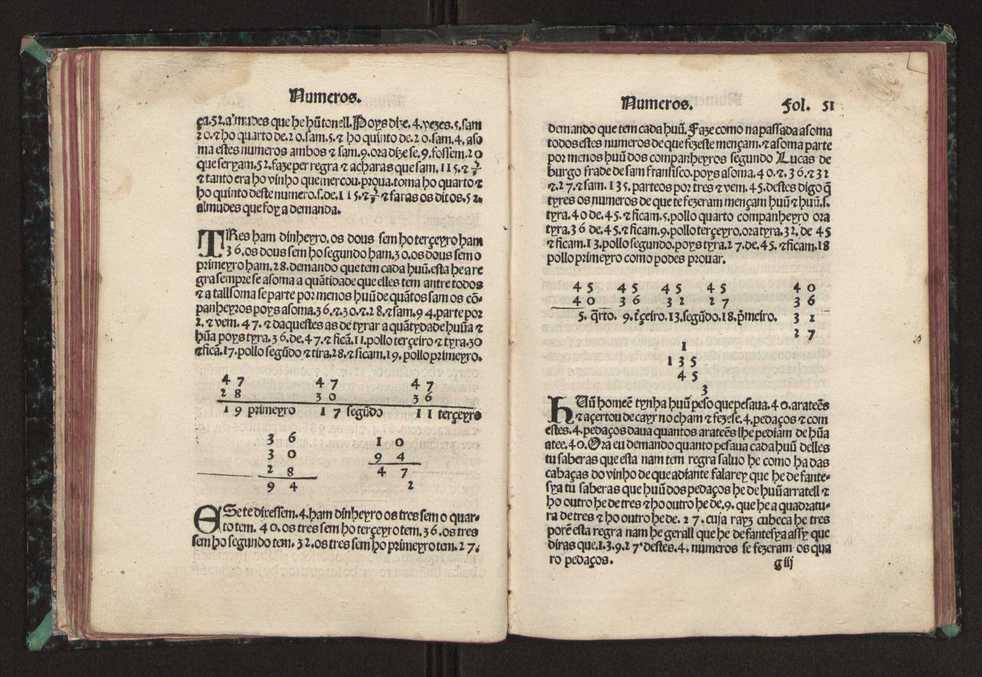 Numeros.
ça.52. almudes que he hũ tonell. Poys dize. 4. vezes. 5. sam
20. ⁊ ho quarto de. 20. sam. 5. ⁊ ho quinto de. 20. sam. 4. aso
ma estes numeros ambos ⁊ sam. 9. ora dize se. 9. fossem. 20
que seryam. 52. faze per regra ⁊ acharas que sam. 115. ⁊ 5/9
⁊ tanto era ho vinho que mercou. proua. toma ho quarto ⁊
ho quinto deste numero. s. de. 115. ⁊ 5/9 ⁊ faras os ditos. 52.
almudes que foy a demanda.
TRes ham dinheyro. os dous sem ho terçeyro ham
36. os dous sem ho segundo ham. 30. os dous sem o
primeyro ham. 28. demando que tem cada huũ. esta he a re
gra sempre se asoma a quãtidade que elles tem antre todos
⁊ a tall soma se parte por menos huũ de quãtos sam os cõ-
panheyros poys asoma. 36. ⁊. 30. ⁊. 28. ⁊ sam. 94. parte por
2. ⁊ vem. 47. ⁊ daquestes as de tyrar a quãtydade huũa ⁊
hũa poys tyra. 36. de. 47. ⁊ ficã. 11. pollo terçeiro ⁊ tyra. 30
⁊ ficã. 17. pollo segũdo ⁊ tira. 28. ⁊ ficam. 19. pollo primeyro.
47 47 47
28 30 36
19 primeyro 17 segũdo 11 terçeyro
36 10
30 94
28 47
94 2
E Se te dixessem. 4. ham dinheyro os tres sem o quar-
to tem. 40. os tres sem ho terçeyro tem. 36. os tres
sem ho segundo tem. 32. os tres sem ho primeyro tem. 27.
Numeros. Fol. 51
demando que tem cada huũ. Faze como na passada asoma
todos estes numeros de que fizeste mençam. ⁊ asoma parte
por menos huũ dos companheyros segundo Lucas de
burgo frade de sam fransisco. poys asoma. 40. ⁊. 36. ⁊ 32
⁊. 27. ⁊ sam. 135. parte os por tres ⁊ vem. 45. destes digo q̃
tyres os numeros de que te fezeram mençam huũ ⁊ huũ. s.
tyra. 40 de. 45. ⁊ ficam. 5. pollo quarto companheyro ora
tyra. 36 de. 45. ⁊ ficam. 9. pollo terçeyro. ora tyra. 32. de 45
⁊ ficam. 13. pollo segundo. poys tyra. 27. de. 45. ⁊ ficam. 18
pollo primeyro como podes prouar.
45 45 45 45 40
40 36 32 27 36
5. q̃rto. 9. tc̃eiro. 13. segũdo. 18. p̃meiro. 32
27
1
135
45
3
HUũ homeẽ tynha huũ peso que pesaua. 40. arateẽs
⁊ açertou de cayr no cham ⁊ fezese. 4. pedaços ⁊ com
estes. 4. pedaços daua quantos arateẽs lhe pediam de hũa
atee. 40. Ora eu demando quanto pesaua cada huũ delles
tu saberas que esta nam tem regra saluo he como ha das
cabaças do vinho de que adiante falarey que he de fante-
sya tu saberas que huũ dos pedaços he de huũ arratell ⁊
ho outro he de tres ⁊ ho outro he de. 9. que he a quadratu-
ra de tres ⁊ ho outro he de. 27. cuja rayz cubeca he tres
porẽ esta regra nam he gerall que he de fantesya assy que
diras que. 1. 3. 9. 27 destes. 4. numeros se fezeram os qua
tro pedaços.
g iij